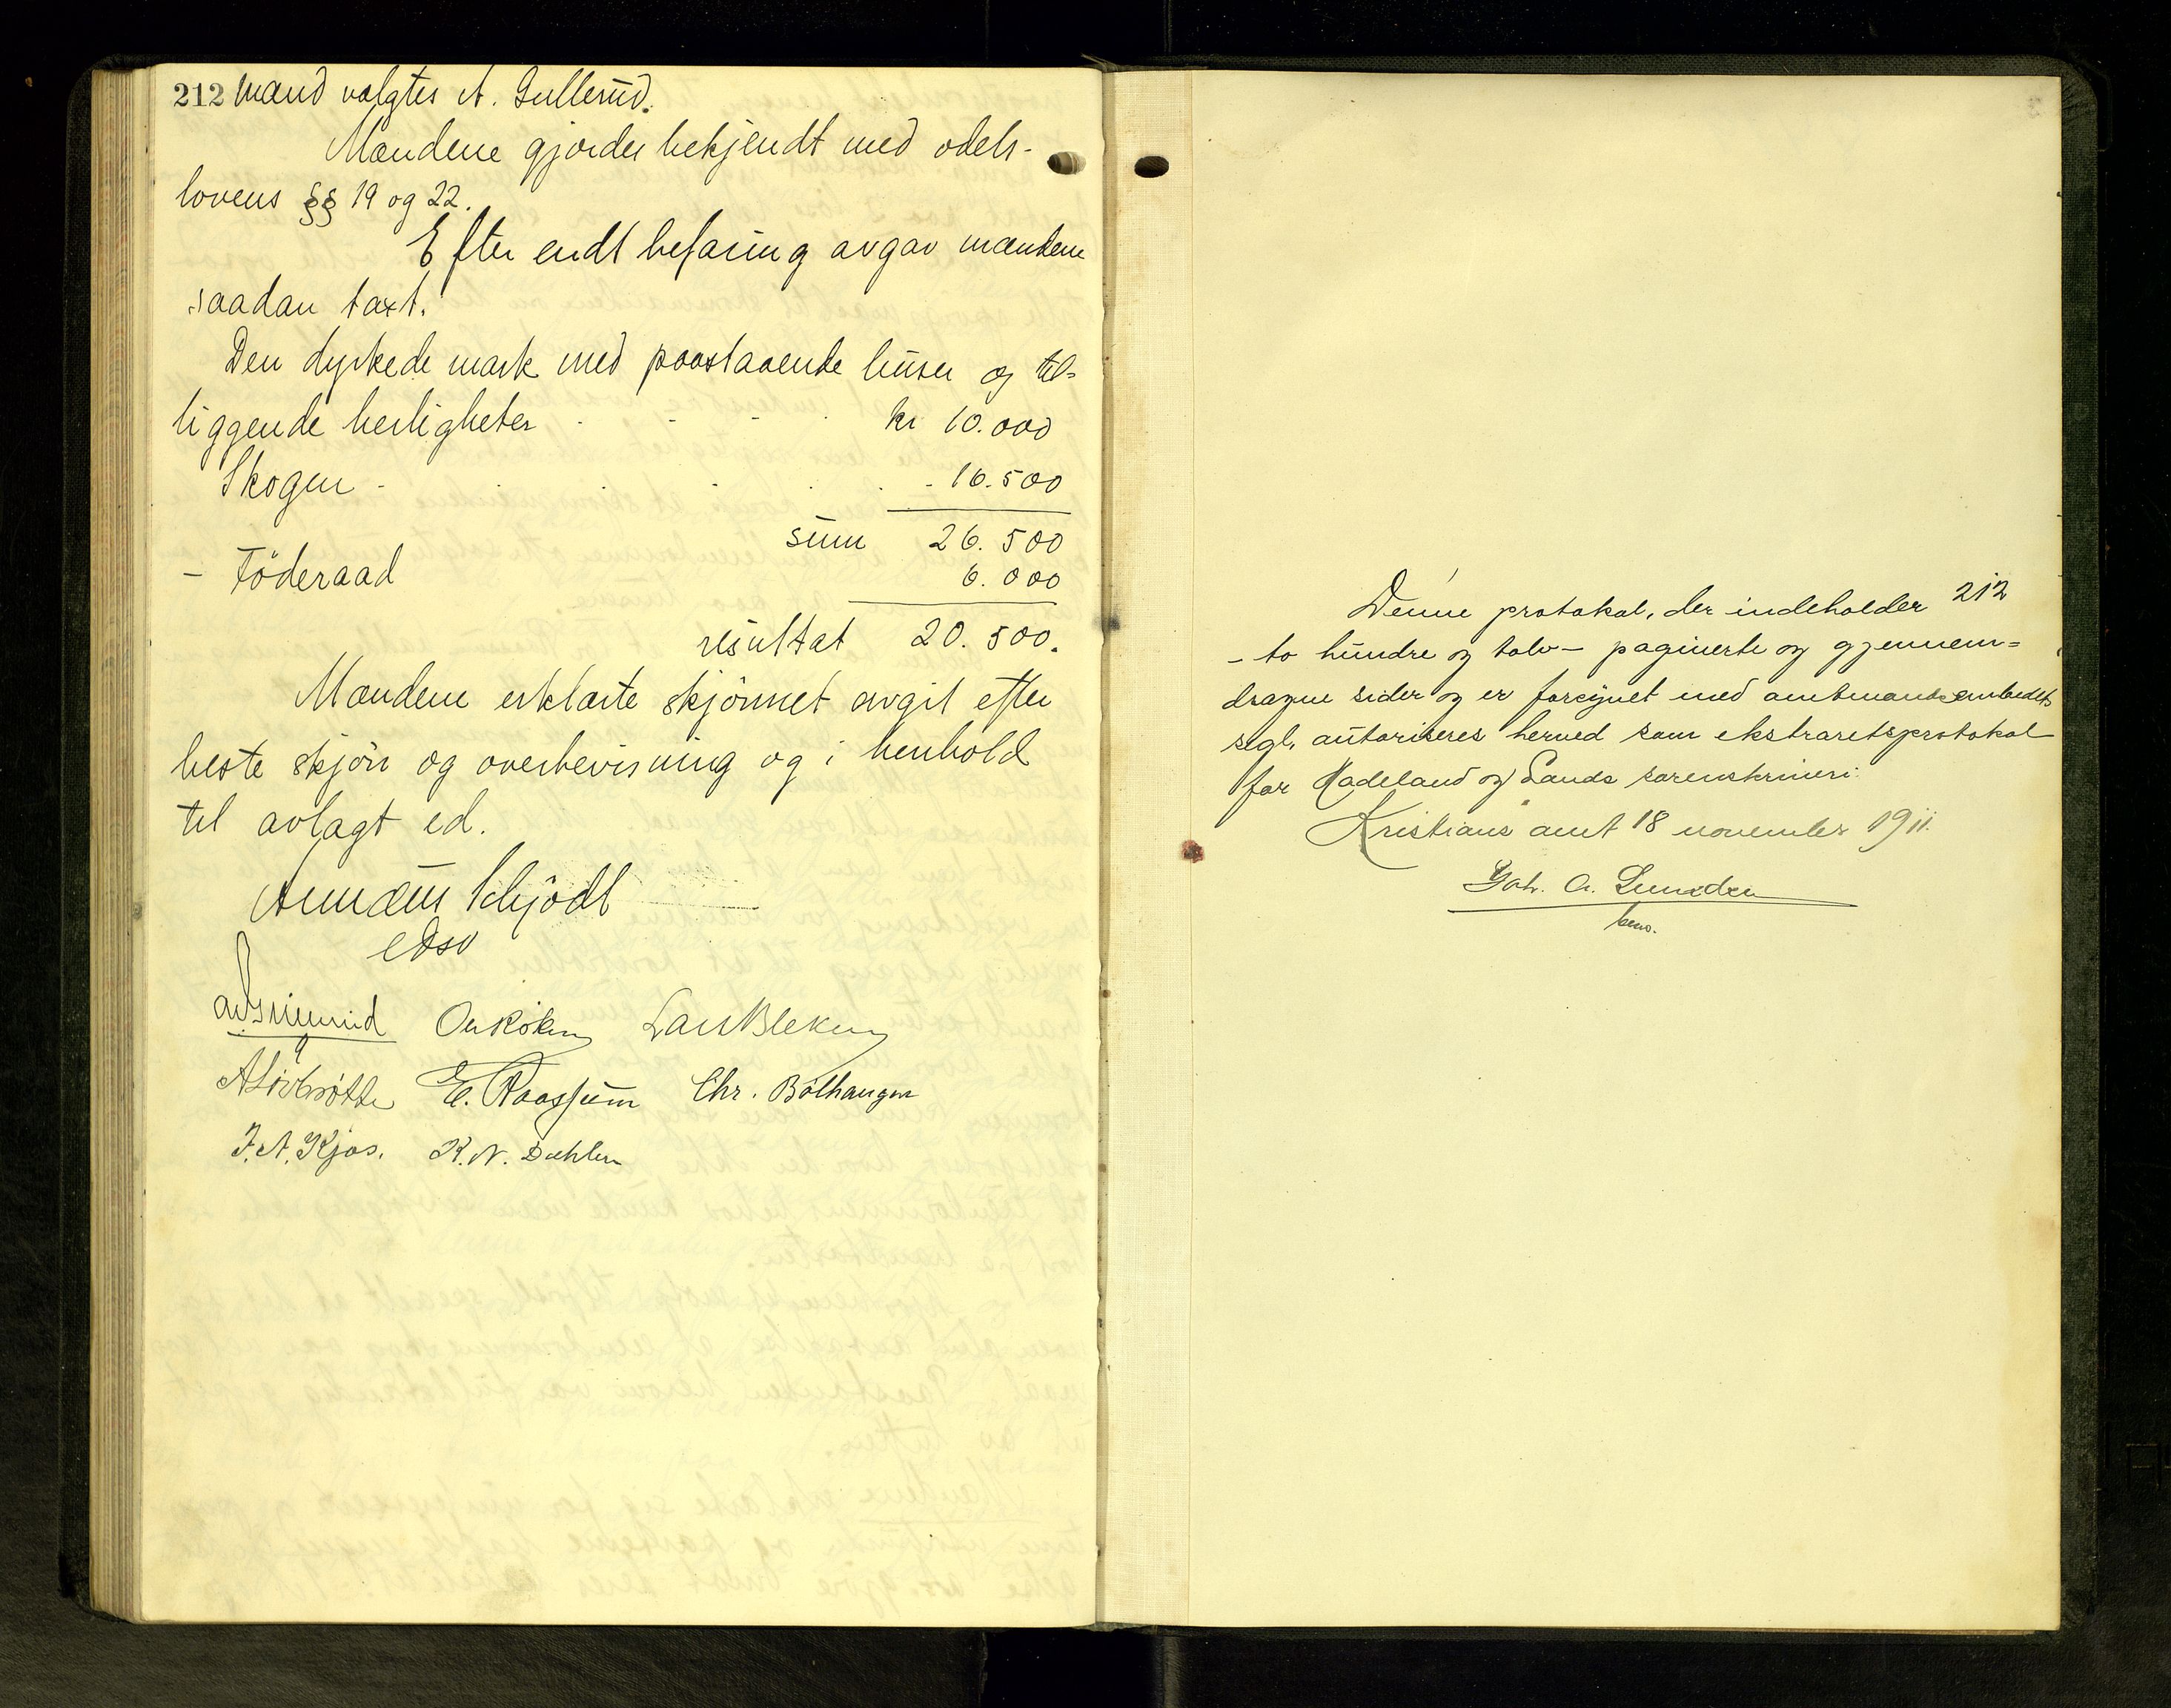 212 mand valgtes A. Gullerud.
Mændene gjordes bekjendt med odels-
lovens §§ 19 og 22.
Efter endt befaring avgav mændene
saadan taxt.
Den dyrkede mark med paastaaende huser og til-
liggende herligheter - - - kr 10.000
Skogen - - - - - 16.500
sum 26.500
- Föderaad 6.000
resultat 20.500.
Mændene erklærte skjönnet avgit efter
beste skjön og overbevisning og i henhold
til avlagt ed.
Annæus Schjödt
edsv
O. Röken Lars Bleken
A Lövbrötte E. Raassum Chr. Bölhaugen
J. A. Kjos. K. N. Dæhlen
Denne protokol, der indeholder 212
- to hundre og tolv - paginerte og gjennem=
dragne sider og er forsynet med amtmandsembedets
segl, autoriseres herved som ekstraretsprotokol
for Hadeland og Lands sorenskriveri.
Kristians amt 18 november 1911.
Joh. A.